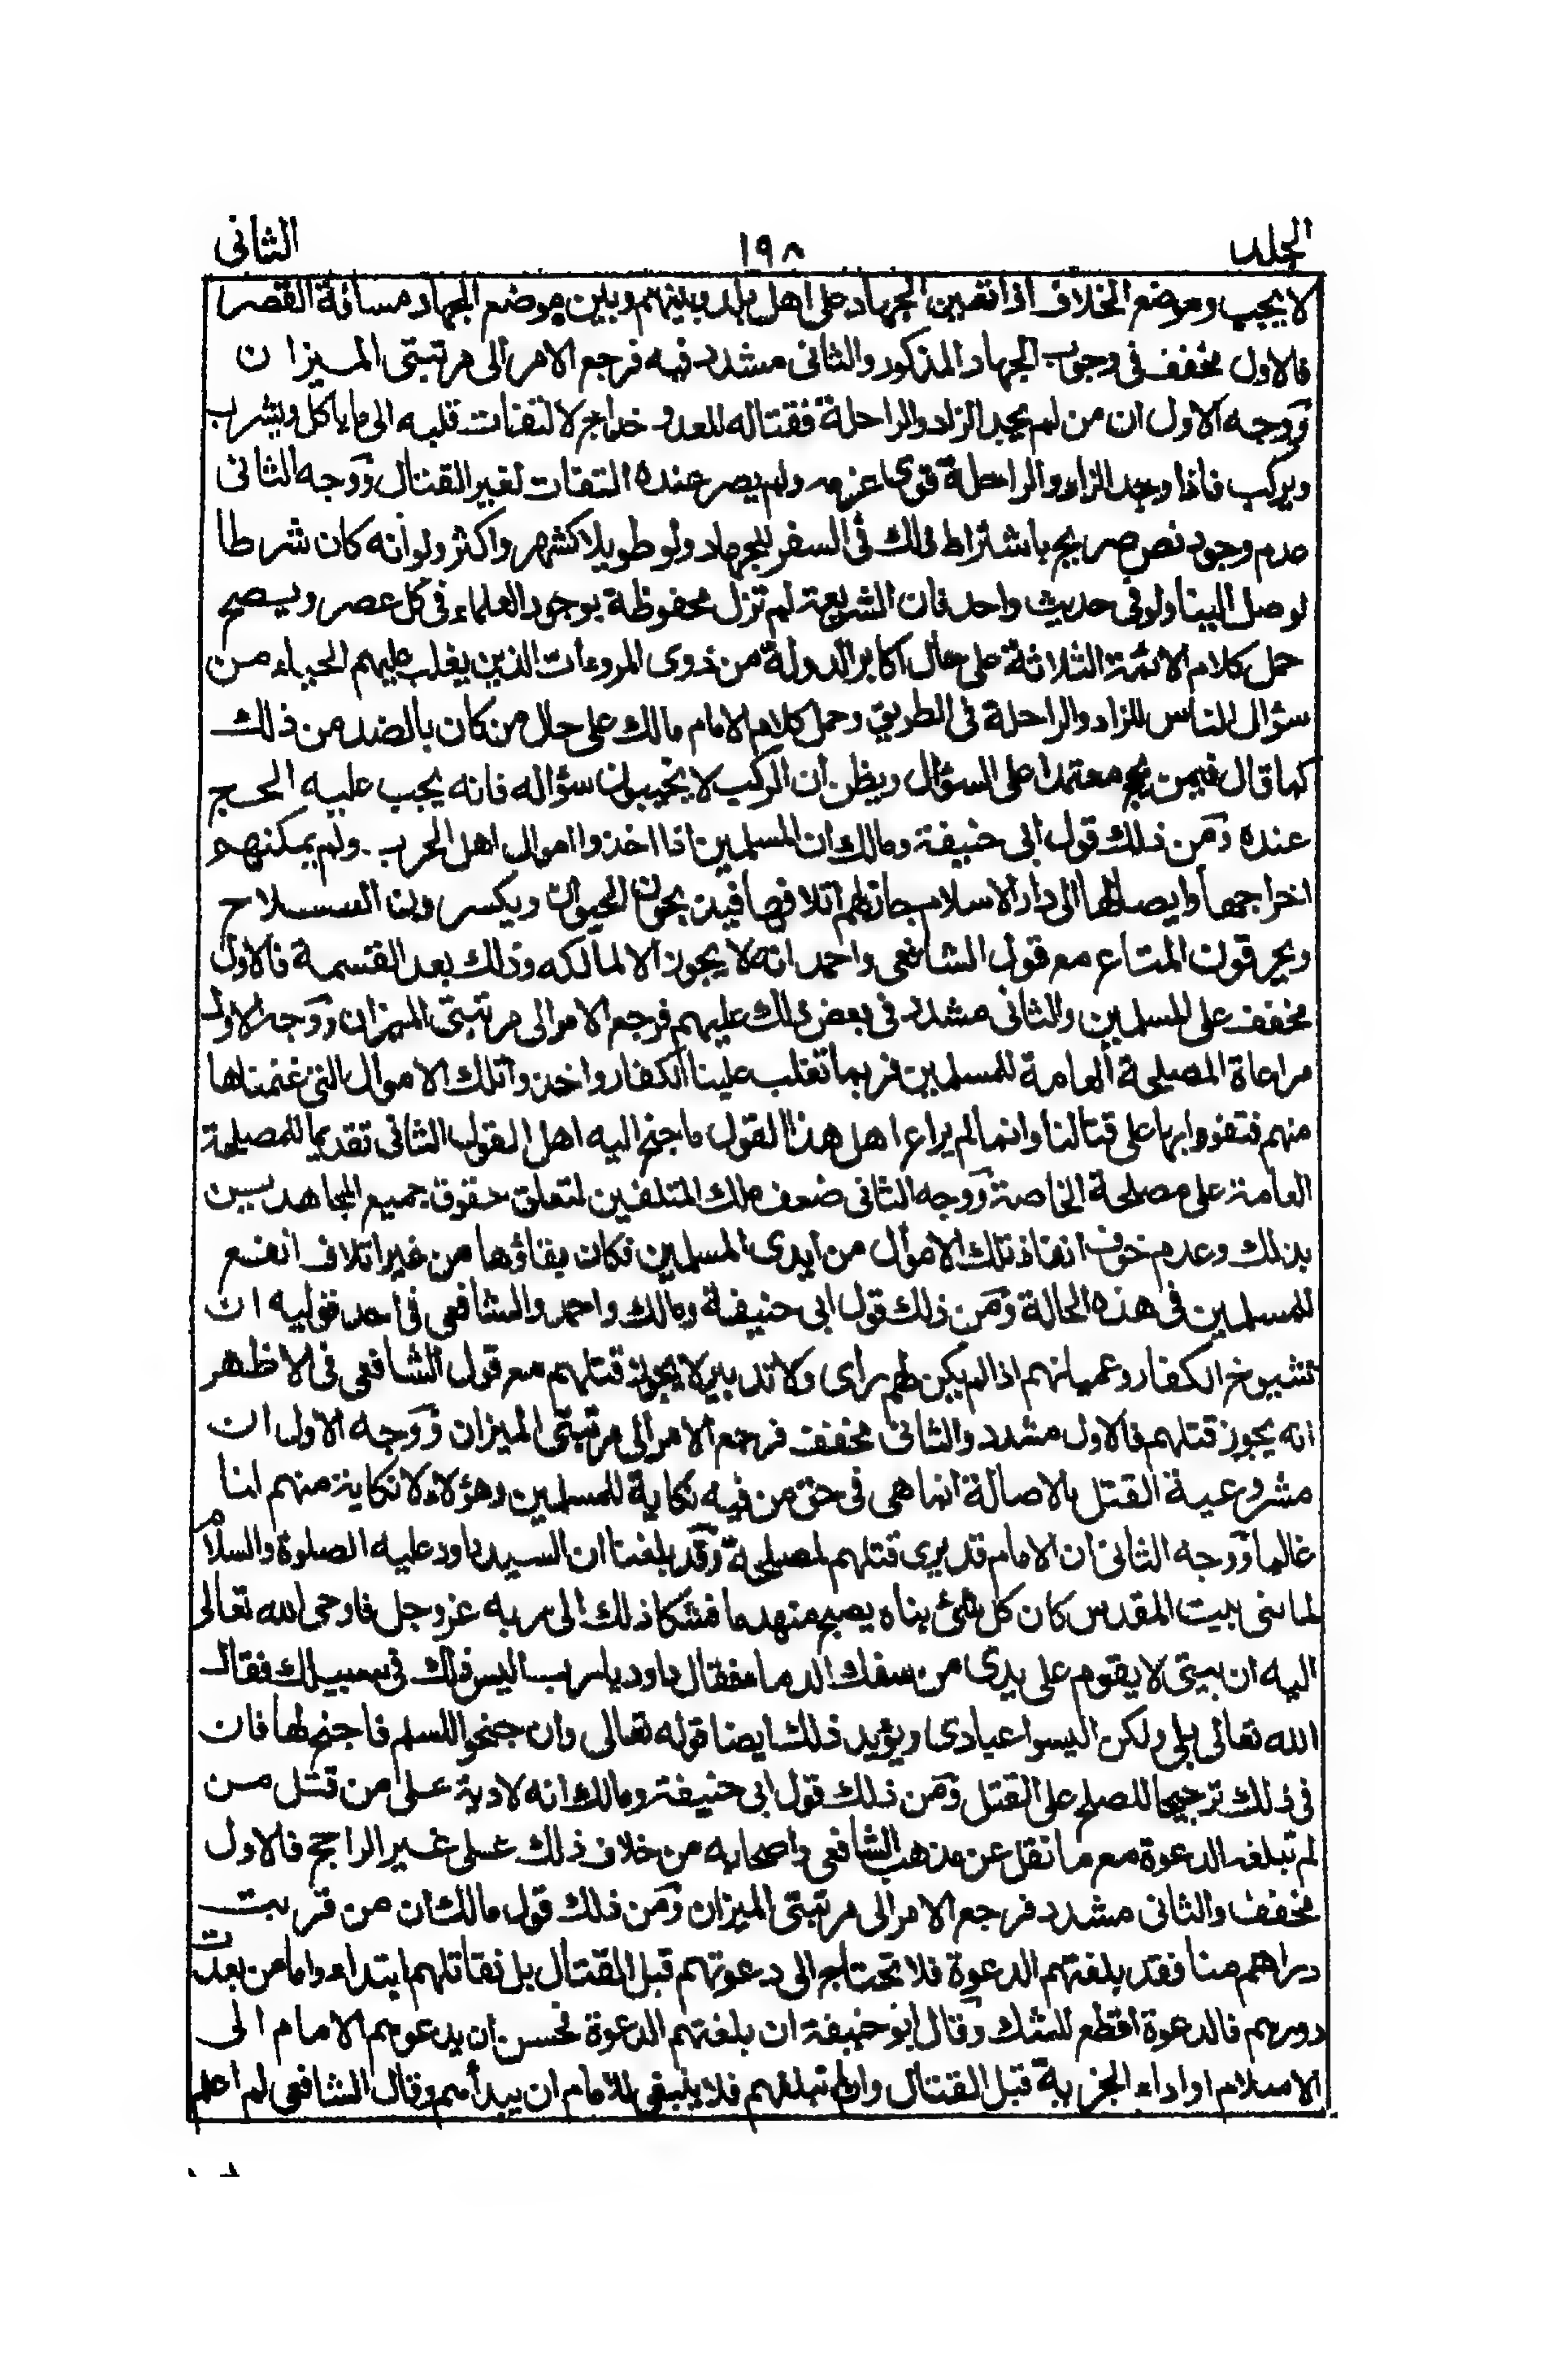 الجلد ١٩٨ الثانى
لا يجب وموضع الخلاف اذا تعين الجهاد على اهل بلد وبينهم وبين موضع الجهاد مسافة القصر
فالاول مخفف فى وجوب الجهاد المذكور والثانى مشدد فيه فرجع الامر الى مرتبتى الميزان
ووجه الاول ان من لم يجد الزاد والراحلة فقتاله للعدو خداج لالتفات قلبه الى ما ياكل ويشرب
ويركب فاذا وجد الزاد والراحلة قوى عزمه ولم يصر عنده التفات لغير القتال ووجه الثانى
عدم وجود نص صريح باشتراط ذلك فى السفر للجهاد ولو طويلا كشهر واكثر ولو انه كان شرطا
لوصل الينا ولو فى حديث واحد فان الشريعة لم تزل محفوظة بوجود العلماء فى كل عصر ويصح
حمل كلام الائمة الثلاثة على حال اكابر الدولة من ذوى المروءات الذين يغلب عليهم الحياء من
سؤال الناس للزاد والراحلة فى الطريق وحمل كلام الامام مالك على حال من كان بالضد من ذلك
كما قال فيمن يحج معتمدا على السؤال ويظن ان الركب لا يخيبون سؤاله فانه يجب عليه الحج
عنده ومن ذلك قول ابى حنيفة ومالك ان المسلمين اذا اخذوا اموال اهل الحرب ولم يمكنهم
اخراجها وايصالها الى دار الاسلام جاز لهم اتلافها فيذبحون الحيوان ويكسرون السلاح
ويحرقون المتاع مع قول الشافعى واحمد انه لا يجوز الا لمالكه وذلك بعد القسمة فالاول
مخفف على المسلمين والثانى مشدد فى بعض ذلك عليهم فرجع الامر الى مرتبتى الميزان ووجه الاول
مراعاة المصلحة العامة للمسلمين فربما تغلب علينا الكفار واخذوا تلك الاموال التى غنمناها
منهم فتقووا بها على قتالنا وانما لم يراع اهل هذا القول ما جنح اليه اهل القول الثانى تقديما للمصلحة
العامة على مصلحة الخاصة ووجه الثانى ضعف ملك المتلفين لتعلق حقوق جميع المجاهدين
بذلك وعدم خوف انفاذ تلك الاموال من ايدى المسلمين فكان بقاؤها من غير اتلاف انفع
للمسلمين فى هذه الحالة ومن ذلك قول ابى حنيفة ومالك واحمد والشافعى فى احد قوليه ان
شيوخ الكفار وعميانهم اذا لم يكن لهم راى ولا تدبير لا يجوز قتلهم مع قول الشافعى فى الاظهر
انه يجوز قتلهم فالاول مشدد والثانى مخفف فرجع الامر الى مرتبتى الميزان ووجه الاول ان
مشروعية القتل بالاصالة انما هى فى حق من فيه نكاية للمسلمين وهؤلاء لا نكاية منهم لنا
غالبا ووجه الثانى ان الامام قد يرى قتلهم لمصلحة وقد بلغنا ان السيد داود عليه الصلوة والسلام
لما بنى بيت المقدس كان كل شئ بناه يصبح منهدما فشكا ذلك الى ربه عز وجل فاوحى الله تعالى
اليه ان بيتى لا يقوم على يدى من سفك الدماء فقال داود يا رب اليس ذلك فى سبيلك فقال
الله تعالى بلى ولكن اليسوا عبادى ويؤيد ذلك ايضا قوله تعالى وان جنحوا للسلم فاجنح لها فان
فى ذلك ترجيحا للصلح على القتل ومن ذلك قول ابى حنيفة ومالك انه لا دية على من قتل من
لم تبلغه الدعوة مع ما نقل عن مذهب الشافعى واصحابه من خلاف ذلك على غير الراجح فالاول
مخفف والثانى مشدد فرجع الامر الى مرتبتى الميزان ومن ذلك قول مالك ان من قربت
دراهم منا فقد بلغتهم الدعوة فلا تحتاج الى دعوتهم قبل القتال بل نقاتلهم ابتداء واما من بعدت
دورهم فالدعوة اقطع للشك وقال ابو حنيفة ان بلغتهم الدعوة فحسن ان يدعوهم الامام الى
الاسلام او اداء الجزية قبل القتال وان لم تبلغهم فلا ينبغى للامام ان يبدأهم وقال الشافعى لم اعلم